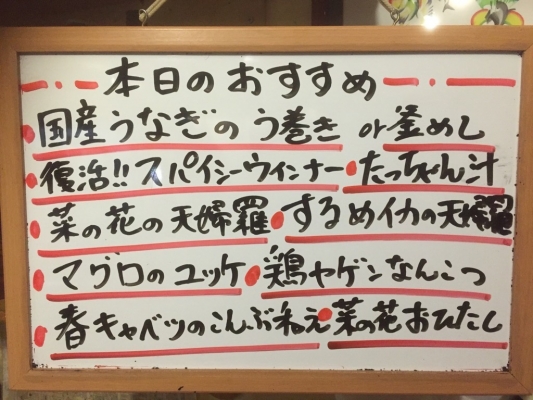 本日のおすすめ
国産うなぎのう巻き or 釜めし
復活!! スパイシーウィンナー たっちゃん汁
菜の花の天婦羅 するめイカの天婦羅
マグロのユッケ 鶏ヤゲンなんこつ
春キャベツのこんぶ和え 菜の花おひたし